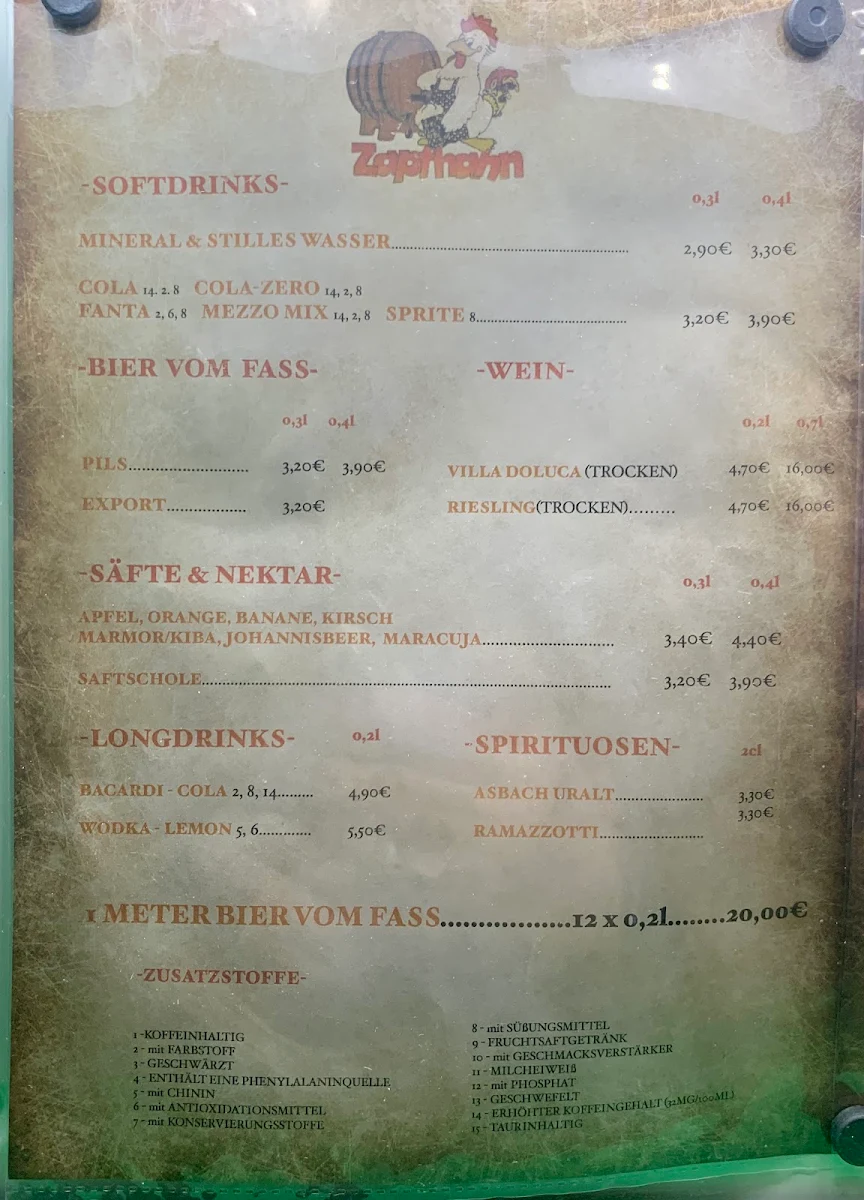 Zapfhahn
-SOFTDRINKS-
0,3l 0,4l
MINERAL & STILLES WASSER........ 2,90€ 3,30€
COLA 14. 2. 8 COLA-ZERO 14, 2, 8
FANTA 2, 6, 8 MEZZO MIX 14, 2, 8 SPRITE 8........ 3,20€ 3,90€
-BIER VOM FASS-
0,3l 0,4l
PILS........ 3,20€ 3,90€
EXPORT........ 3,20€
-WEIN-
0,2l 0,7l
VILLA DOLUCA (TROCKEN) 4,70€ 16,00€
RIESLING(TROCKEN)......... 4,70€ 16,00€
-SÄFTE & NEKTAR-
0,3l 0,4l
APFEL, ORANGE, BANANE, KIRSCH
MARMOR/KIBA, JOHANNISBEER, MARACUJA........ 3,40€ 4,40€
SAFTSCHOLE........ 3,20€ 3,90€
-LONGDRINKS- 0,2l
BACARDI - COLA 2, 8, 14......... 4,90€
WODKA - LEMON 5, 6............. 5,50€
-SPIRITUOSEN- 2cl
ASBACH URALT........ 3,30€
3,30€
RAMAZZOTTI........
1 METER BIER VOM FASS.................12 x 0,2l........20,00€
-ZUSATZSTOFFE-
1 -KOFFEINHALTIG
2 - mit FARBSTOFF
3 - GESCHWÄRZT
4 - ENTHÄLT EINE PHENYLALANINQUELLE
5 - mit CHININ
6 - mit ANTIOXIDATIONSMITTEL
7 - mit KONSERVIERUNGSSTOFFE
8 - mit SÜßUNGSMITTEL
9 - FRUCHTSAFTGETRÄNK
10 - mit GESCHMACKSVERSTÄRKER
11 - MILCHEIWEIß
12 - mit PHOSPHAT
13 - GESCHWEFELT
14 - ERHÖHTER KOFFEINGEHALT (32MG/100ML)
15 - TAURINHALTIG